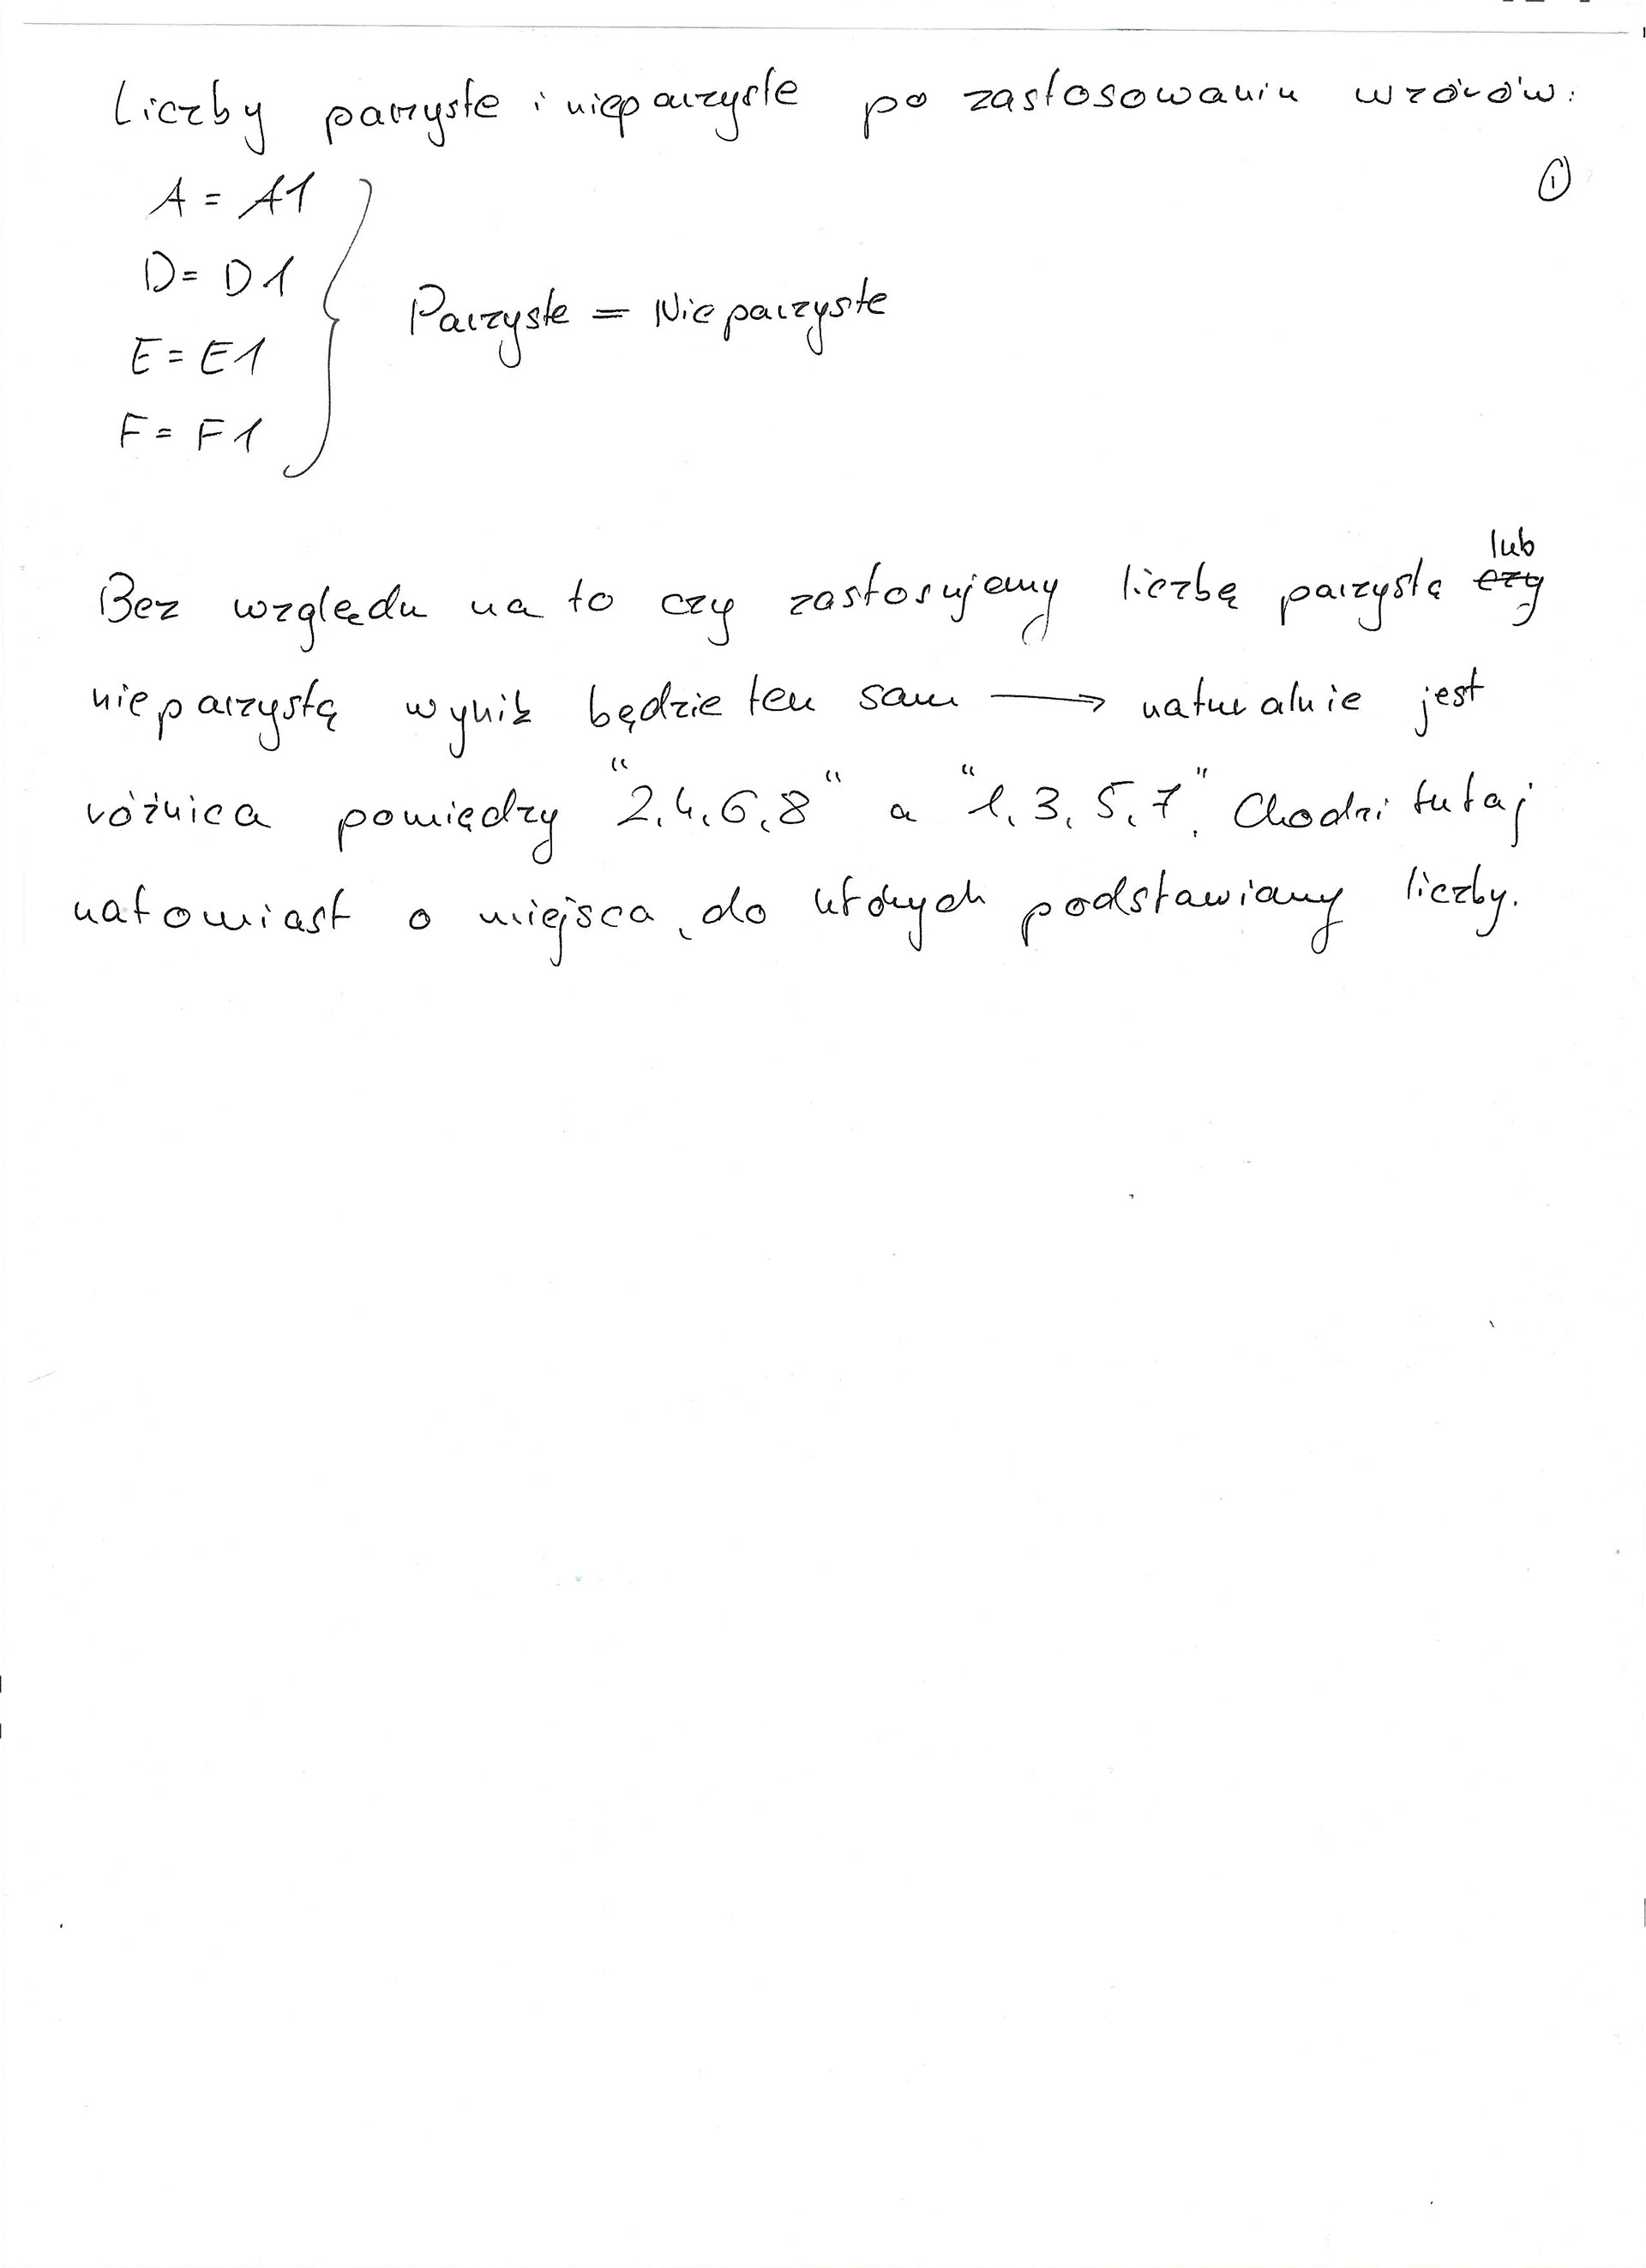 Liczby parzyste i nieparzyste po zastosowaniu wzorów:
①
A = A1
D = D1
E = E1
F = F1
Parzyste = Nieparzyste
lub
Bez względu na to czy zastosujemy liczbę parzystą czy
nieparzystą wynik będzie ten sam → naturalnie jest
różnica pomiędzy “2,4,6,8“ a “1,3,5,7”. Chodzi tutaj
natomiast o miejsca, do których podstawiamy liczby.